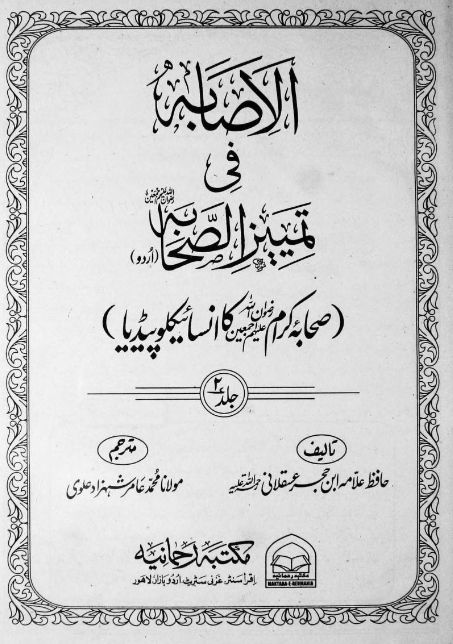 الاصابہ
فی
تمییز الصحابہ رضوان اللہ علیہم اجمعین (اُردو)
(صحابۂ کرام رضوان اللہ علیہم اجمعین کا انسائیکلوپیڈیا)
جلد ۲
تالیف
حافظ علامہ ابن حجر عسقلانی رحمۃ اللہ علیہ
مترجم
مولانا محمد عامر شہزاد علوی
مکتبہ رحمانیہ
اقرأ سنٹر غزنی سٹریٹ اردو بازار لاہور
مکتبہ رحمانیہ
MAKTABA-E-REHMANIA